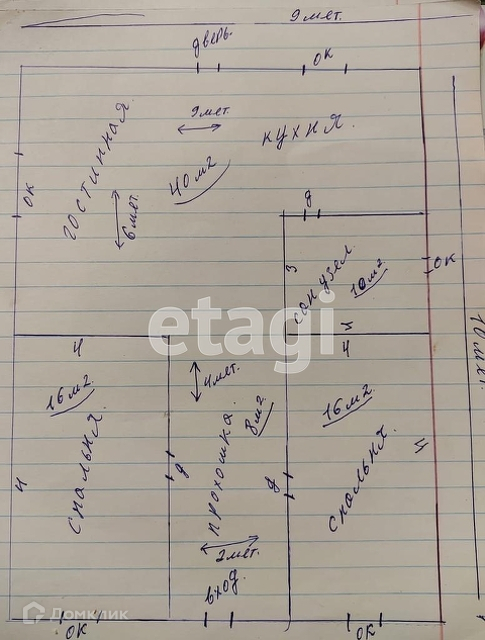 9 мет.
дверь.
ОК
9 мет.
кухня.
гостинная
40 м2
6 мет.
ОК
д
3
санузел.
10 м2
ОК
10 мет.
etagi
4
4
4 мет.
16 м2
спальня.
4
д
прохошка.
8 м2
д
16 м2
спальня.
4
2 мет.
вход.
ОК
ОК
Домклик